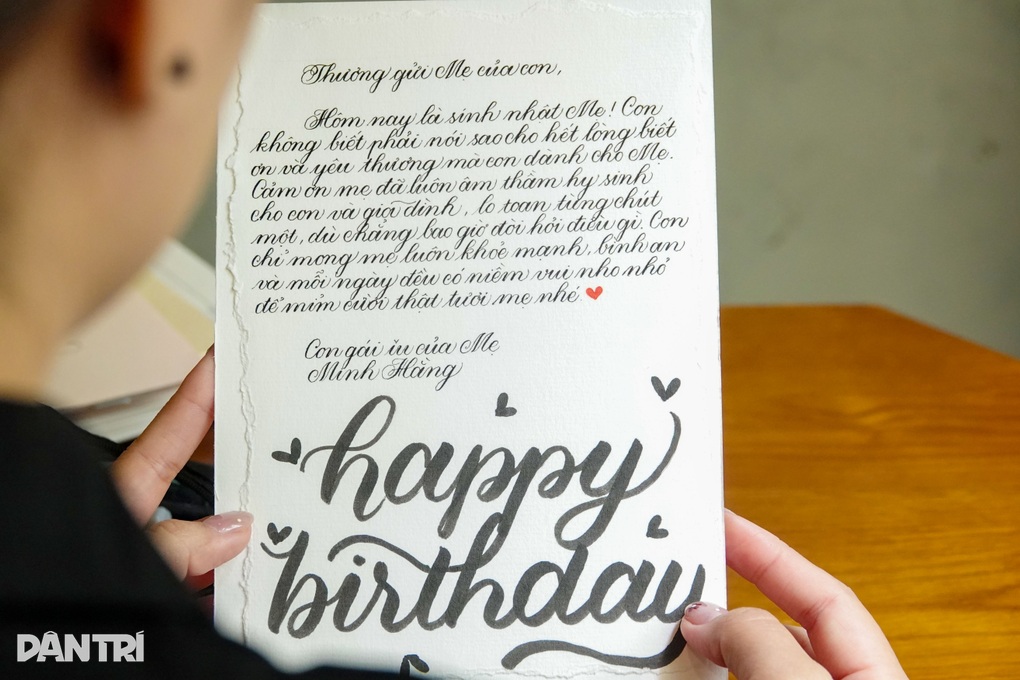 Thương gửi Mẹ của con,
Hôm nay là sinh nhật Mẹ! Con
không biết phải nói sao cho hết lòng biết
ơn và yêu thương mà con dành cho Mẹ.
Cảm ơn mẹ đã luôn âm thầm hy sinh
cho con và gia đình, lo toan từng chút
một, dù chẳng bao giờ đòi hỏi điều gì. Con
chỉ mong mẹ luôn khoẻ mạnh, bình an
và mỗi ngày đều có niềm vui nho nhỏ
để mỉm cười thật tươi mẹ nhé ❤
Con gái iu của Mẹ
Minh Hằng
happy
birthday
DÂN TRÍ